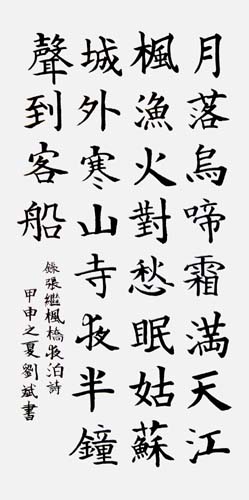 月落烏啼霜滿天江
楓漁火對愁眠姑蘇
城外寒山寺夜半鐘
聲到客船
錄張繼楓橋夜泊詩
甲申之夏劉斌書